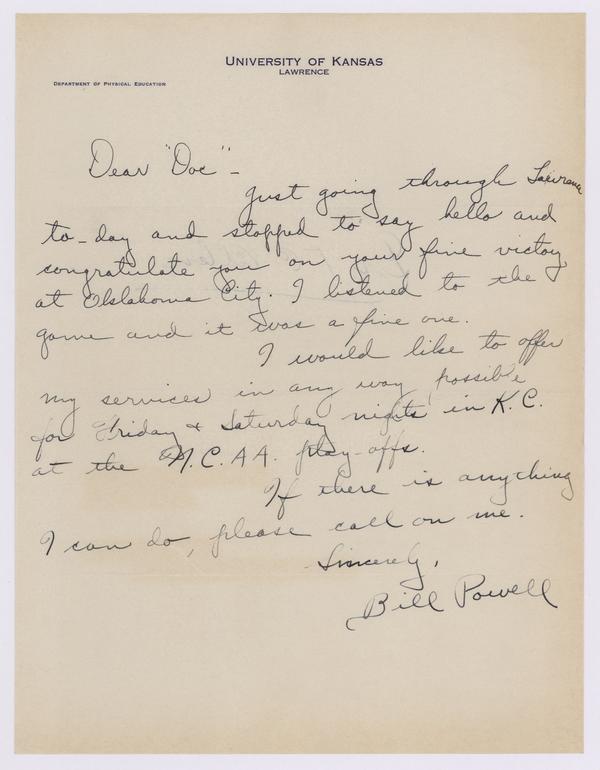 UNIVERSITY OF KANSAS
LAWRENCE
DEPARTMENT OF PHYSICAL EDUCATION
Dear "Doc" -
Just going through Lawrence
to-day and stopped to say hello and
congratulate you on your fine victory
at Oklahoma City. I listened to the
game and it was a fine one.
I would like to offer
my services in any way possible
for Friday + Saturday nights in K.C.
at the N.C.A.A. play-offs.
If there is anything
I can do, please call on me.
Sincerely,
Bill Powell